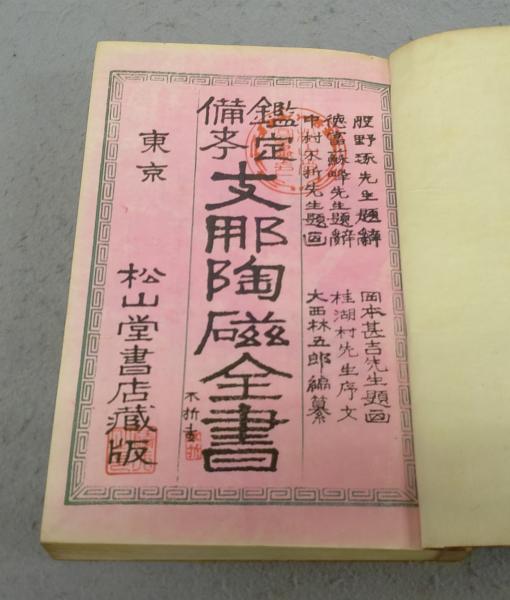 股野琢先生題辭
德富蘇峰先生題辭
中村不折先生題画
岡本甚吉先生題画
桂湖村先生序文
大西林五郎編纂
鑑定
備考
支那陶磁全書
不折書
東京
松山堂書店藏版